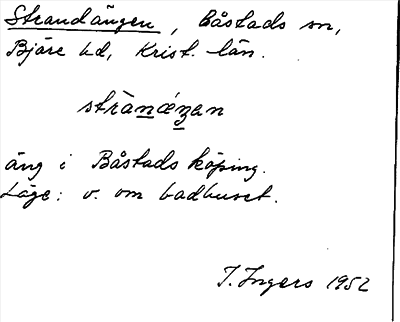 Strandängen, Båstads sn,
Bjäre hd, Krist. län.
strànǽŋan
äng i Båstads köping.
Läge: v. om badhuset.
I. Ingers 1952